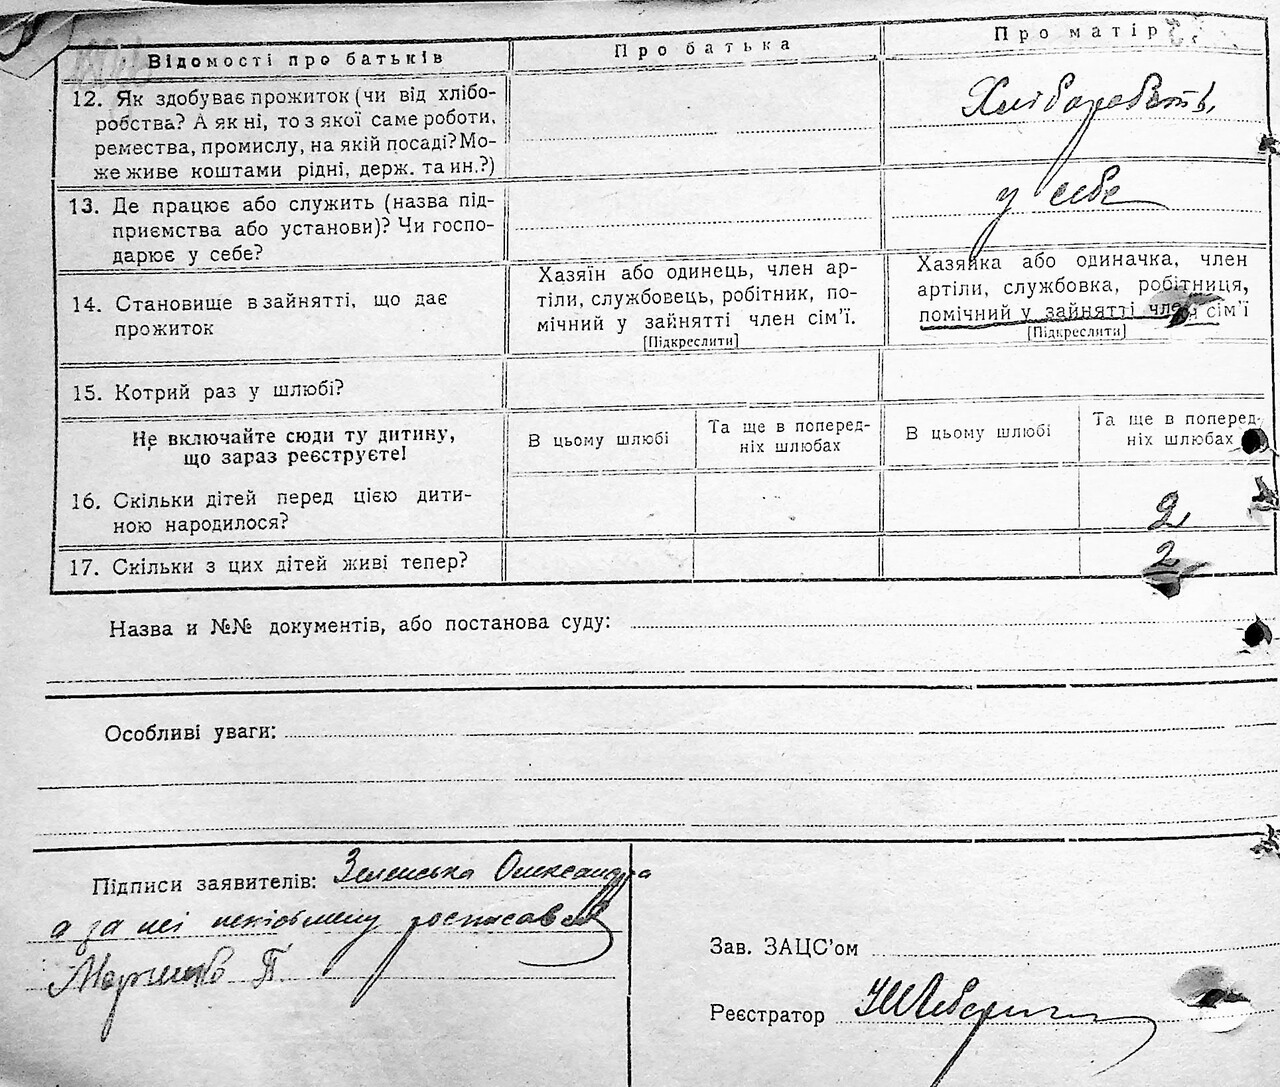 Відомості про батьків
Про батька
Про матір
12. Як здобуває прожиток (чи від хлібо-
робства? А як ні, то з якої саме роботи,
ремества, промислу, на якій посаді? Мо-
же живе коштами рідні, держ. та ин.?)
Хліборобств.
13. Де працює або служить (назва під-
приємства або установи)? Чи госпо-
дарює у себе?
у себе
14. Становище в зайнятті, що дає
прожиток
Хазяїн або одинець, член ар-
тіли, службовець, робітник, по-
мічний у зайнятті член сім'ї.
[Підкреслити]
Хазяйка або одиначка, член
артіли, службовка, робітниця,
помічний у зайнятті член сім'ї
[Підкреслити]
15. Котрий раз у шлюбі?
Не включайте сюди ту дитину,
що зараз реєструєте!
В цьому шлюбі
Та ще в поперед-
ніх шлюбах
В цьому шлюбі
Та ще в поперед-
ніх шлюбах
16. Скільки дітей перед цією дити-
ною народилося?
2
17. Скільки з цих дітей живі тепер?
2
Назва и №№ документів, або постанова суду:
Особливі уваги:
Підписи заявителів: Зеленська Олександра
а за неї росписався
П.
Зав. ЗАЦС'ом
Реєстратор